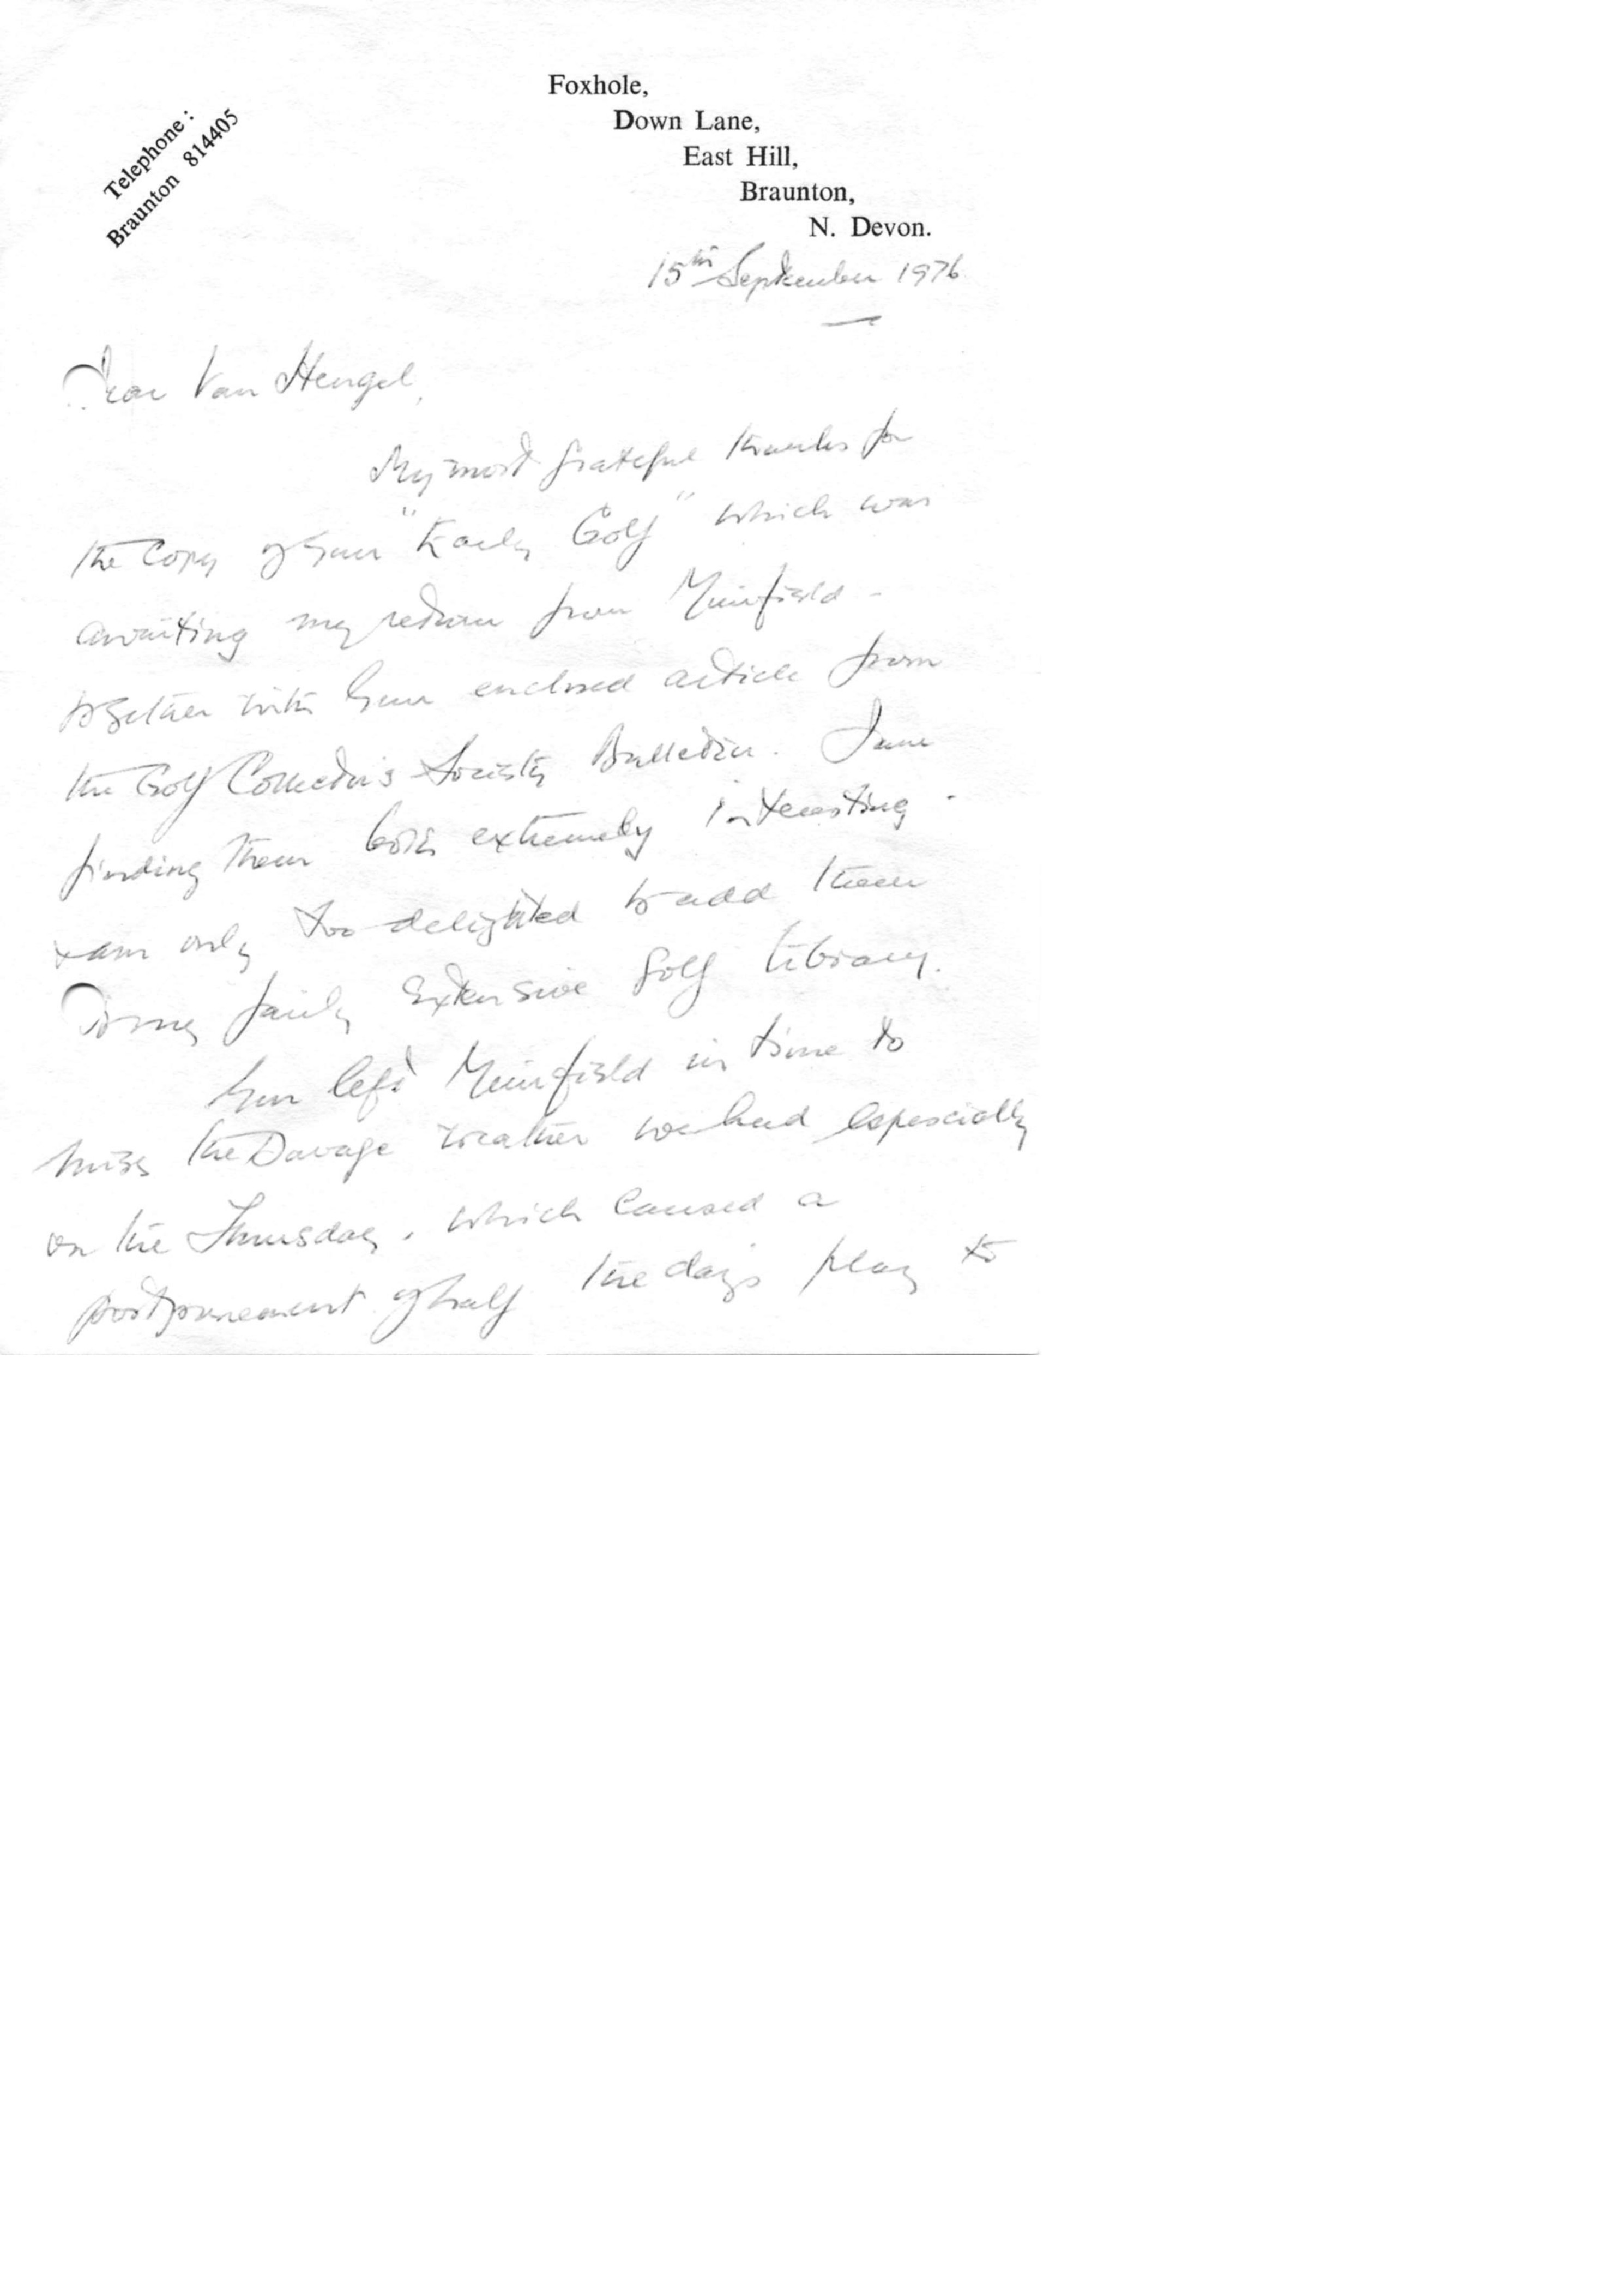 Telephone:
Braunton 814405
Foxhole,
Down Lane,
East Hill,
Braunton,
N. Devon.
15th September 1976
Dear Van Hengel,
My most grateful thanks for
the copy of your "Early Golf" which was
awaiting my return from Muirfield -
together with your enclosed article from
the Golf Collector's Society Bulletin. I am
finding them both extremely interesting -
& am only too delighted to add them
to my fairly extensive golf library.
You left Muirfield in time to
miss the savage weather we had especially
on the Thursday, which caused a
postponement of half the days play to